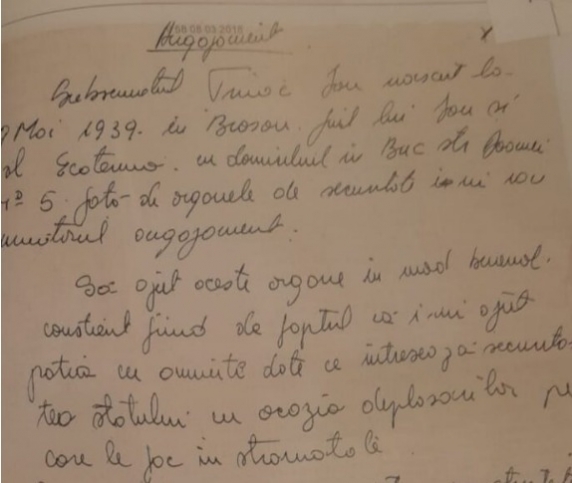 Angajament
58 08 03 2018
Subsemnatul Ion născut la
9 Mai 1939 în Brașov. fiul lui Ion și
al Ecaterina. cu domiciliul în Buc str
5 față de organele de securitate îmi iau
următorul angajament.
Să ajut aceste organe în mod benevol.
conștient fiind de faptul că îmi ajut
patria cu anumite date ce interesează securita-
tea statului cu ocazia deplasărilor pe
care le fac în străinătate